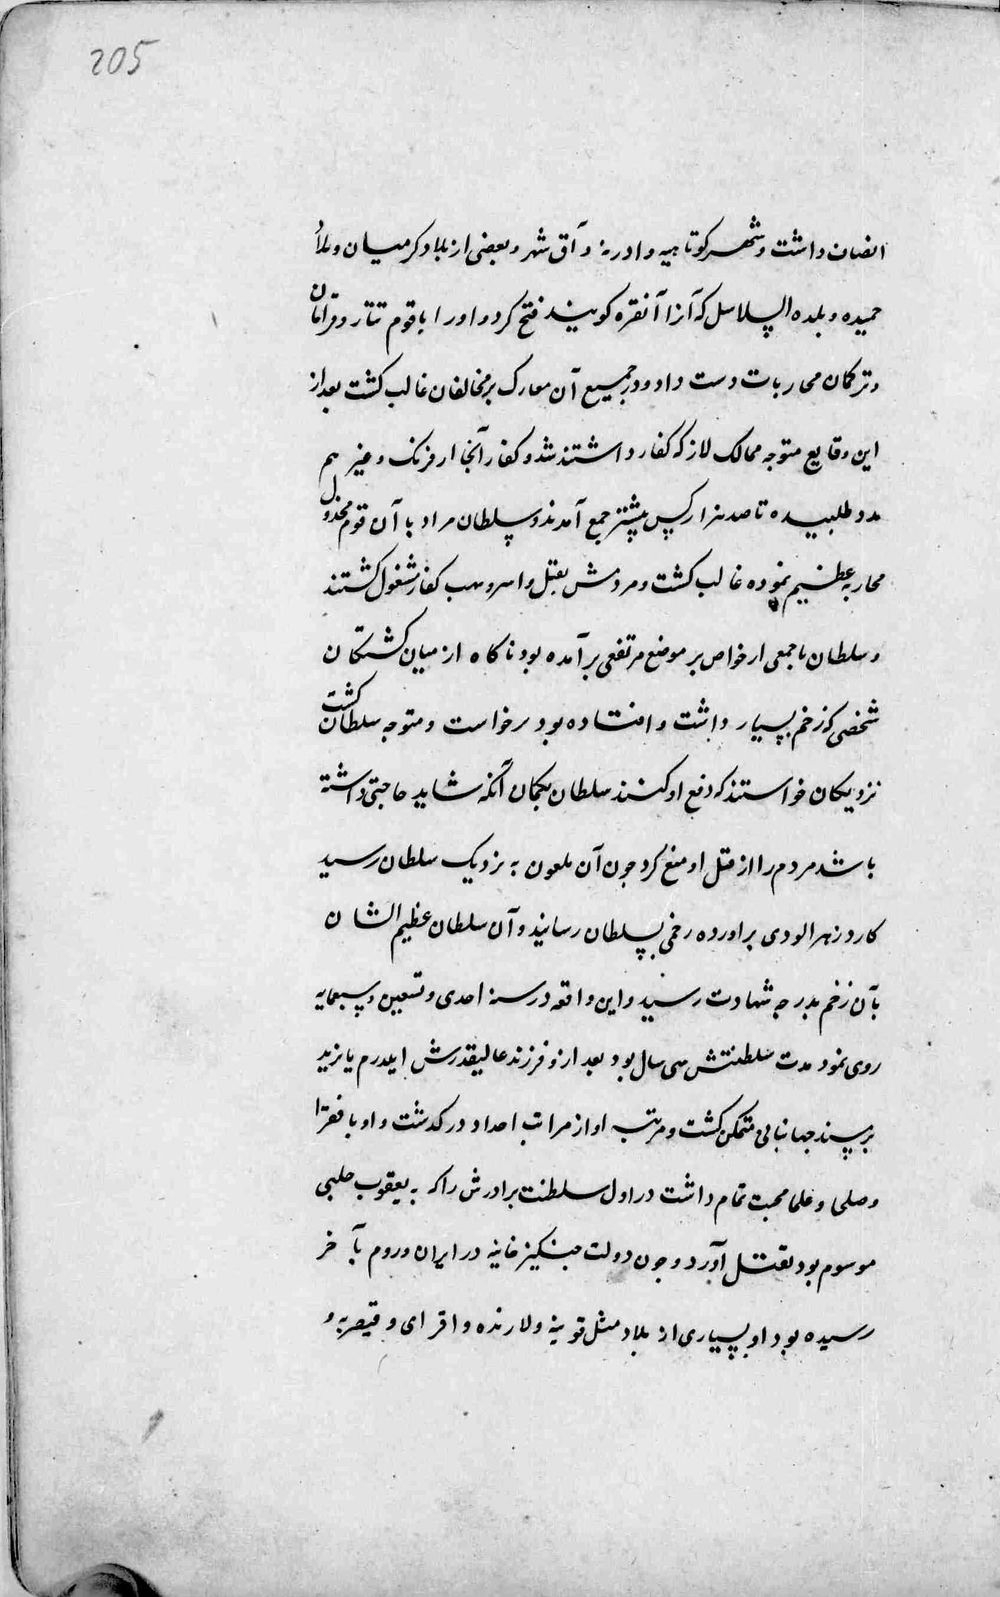 205
انصاف داشت و شهر کوتاهیه و ادرنه و آق شهر و بعضی از بلاد کرمیان و بلاد
حمیده و بلده السلاسل که آنرا آنقره کویند فتح کرد و اورا با قوم تتار و قرامان
و ترکمان محاربات دست داد و در جمیع آن معارک بر مخالفان غالب کشت بعد از
این وقایع متوجه ممالک لاز که کفار داشتند شد و کفار آنجا از فرنک و غیرهم
مدد طلبیده تا صد هزار کس پیشتر جمع آمدند و سلطان مراد با آن قوم مخذول
محاربه عظیم نموده غالب کشت و مردمش بقتل و اسر و نهب کفار مشغول کشتند
و سلطان با جمعی از خواص بر موضع مرتفعی برآمده بود ناکاه از میان کشتکان
شخصی که زخم بسیار داشت و افتاده بود برخواست و متوجه سلطان کشت
نزدیکان خواستند که دفع او کنند سلطان بکمان آنکه شاید حاجتی داشته
باشد مردم را از قتل او منع کرد جون آن ملعون به نزدیک سلطان رسید
کارد زهر الودی براورده زخمی بسلطان رسانید و آن سلطان عظیم الشان
بآن زخم بدرجه شهادت رسید و این واقعه در سنه احدی و تسعین و سبعمایه
روی نمود مدت سلطنتش سی سال بود بعد ازو فرزند عالیقدرش ایلدرم بایزید
بر مسند جهانبانی متمکن کشت و مرتبه او از مراتب اجداد در کذشت و او با فقرا
و صلحا و علما محبت تمام داشت در اول سلطنت برادرش را که به یعقوب جلبی
موسوم بود بقتل آورد و جون دولت جنکیز خانیه در ایران و روم بآخر
رسیده بود او بسیاری از بلاد مثل قونیه و لارنده و اقسرای و قیصریه و